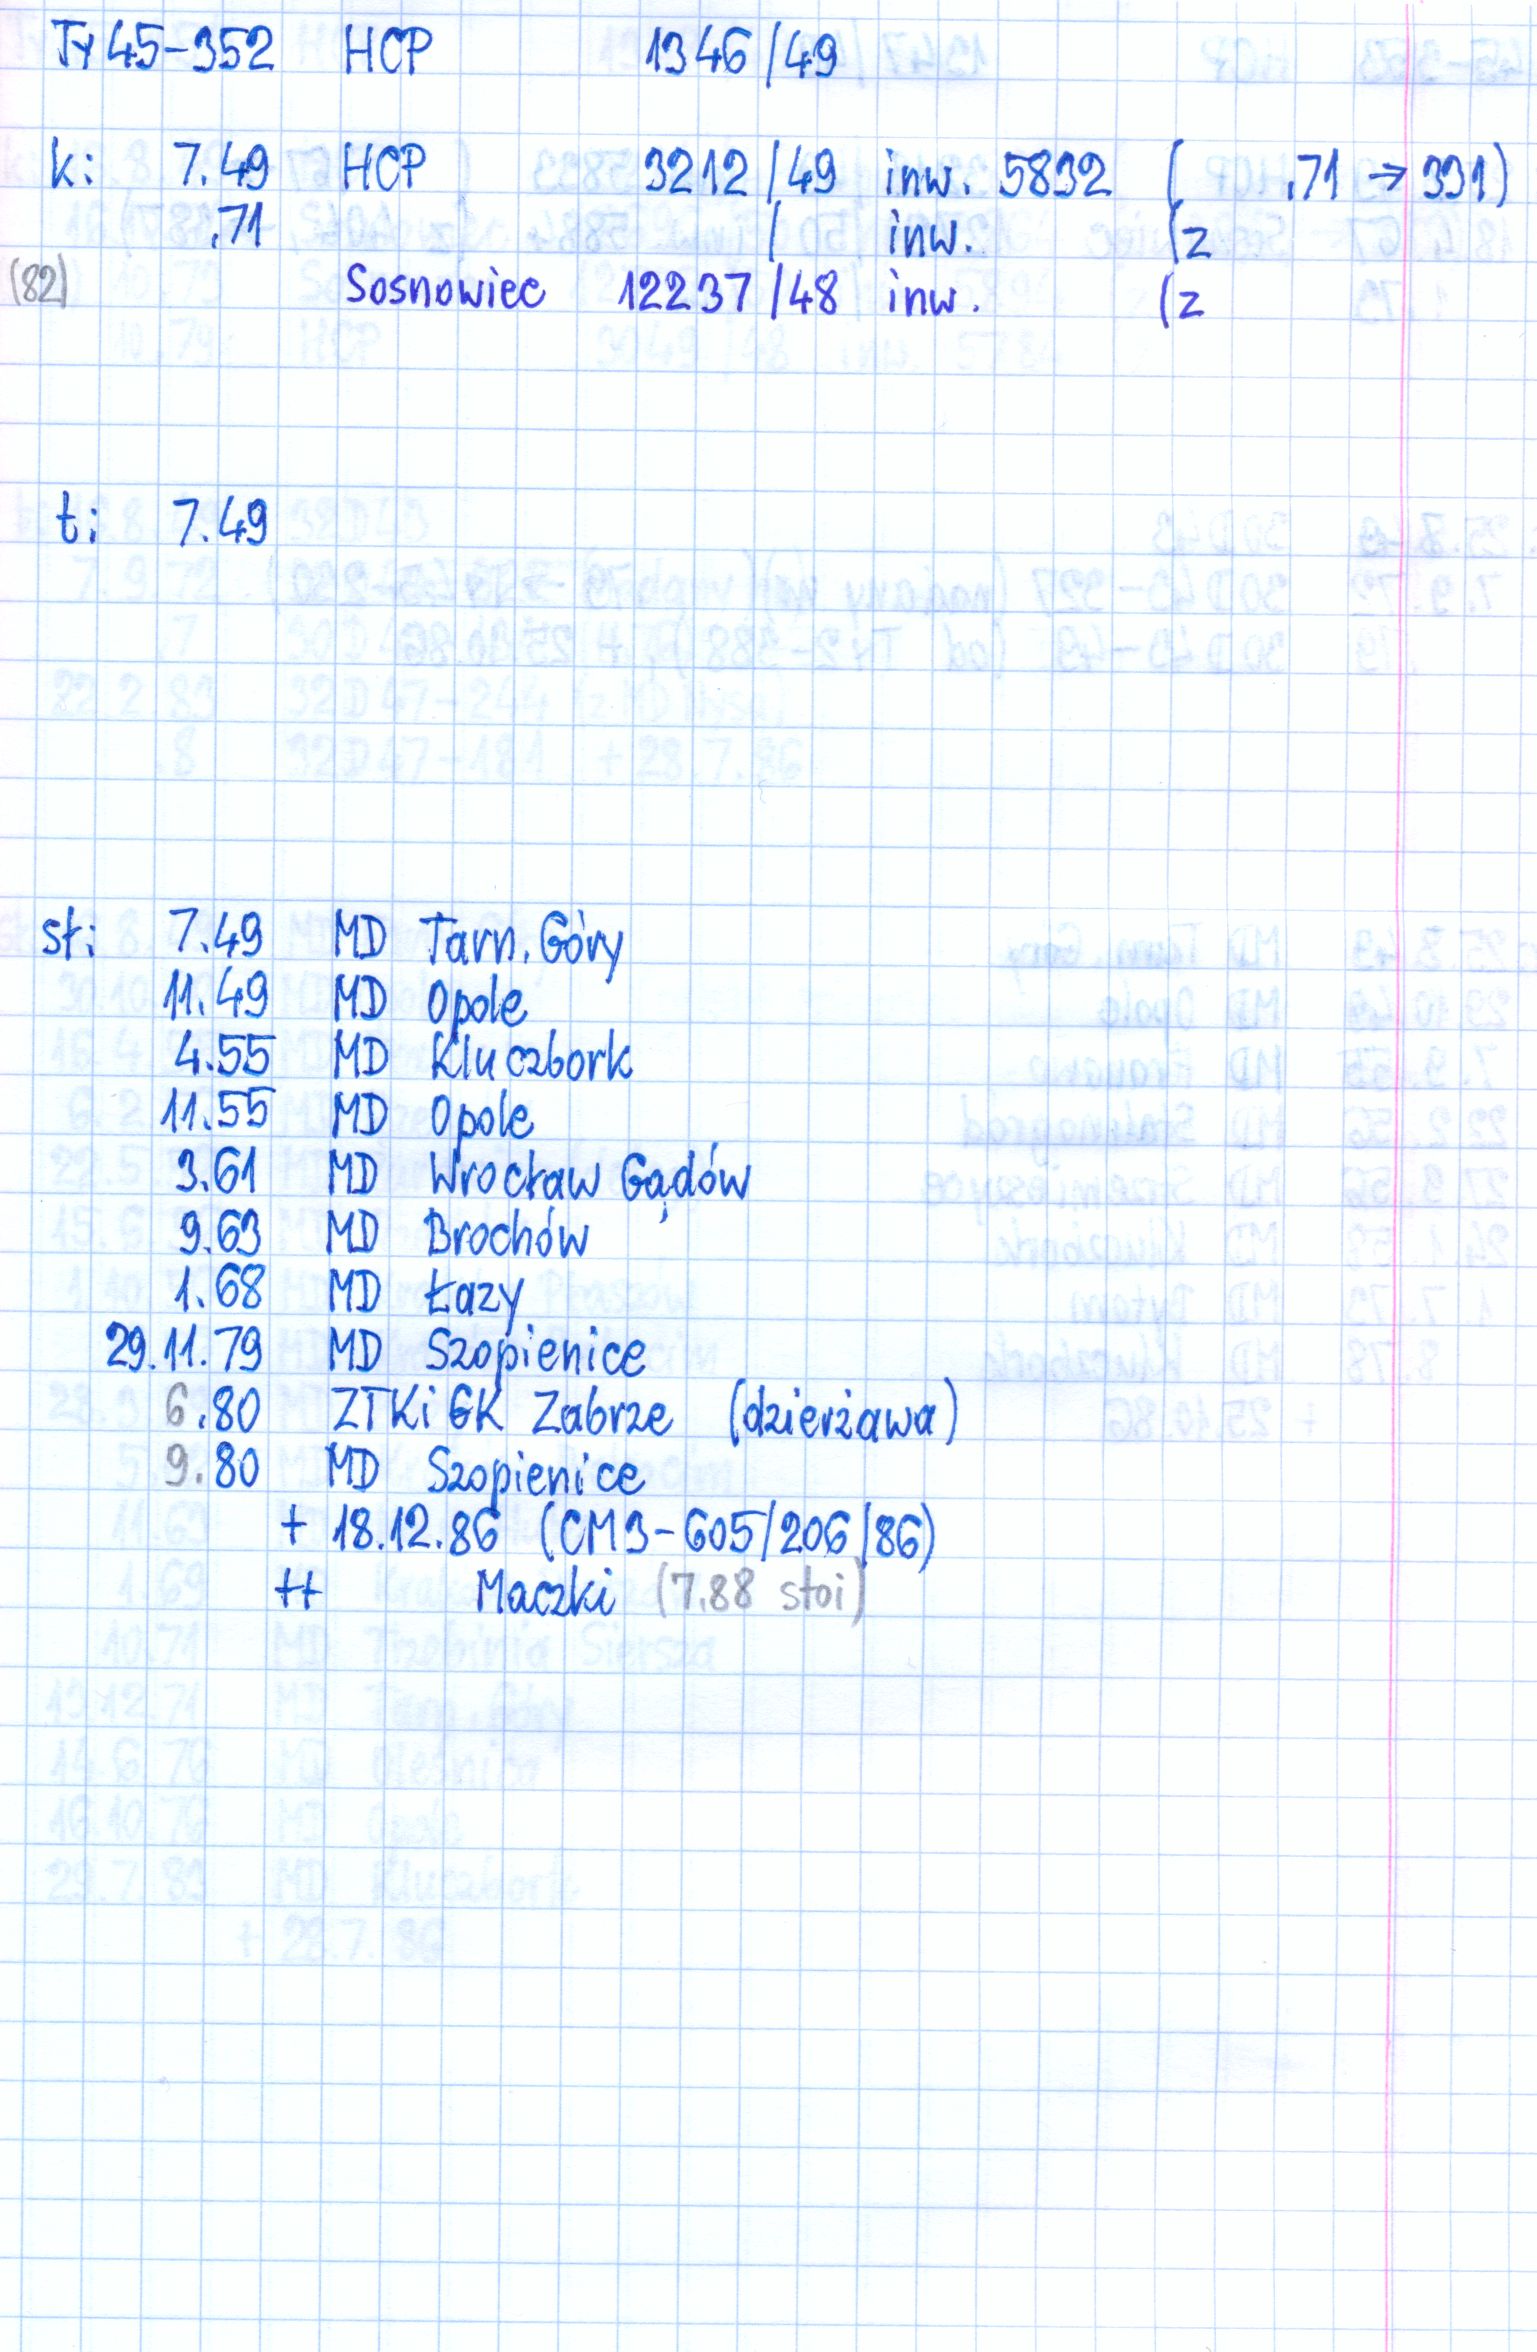 Ty45-352 HCP 1346/49
k: 7.49 HCP 3212/49 inw. 5832 ( .71 → 331)
.71 / inw. (z
(82) Sosnowiec 12237/48 inw. (z
t: 7.49
st: 7.49 MD Tarn. Góry
11.49 MD Opole
4.55 MD Kluczbork
11.55 MD Opole
3.61 MD Wrocław Gądów
9.63 MD Brochów
1.68 MD Łazy
29.11.79 MD Szopienice
6.80 ZTKiGK Zabrze (dzierżawa)
9.80 MD Szopienice
+ 18.12.86 (CM3-605/206/86)
++ Maczki (7.88 stoi)